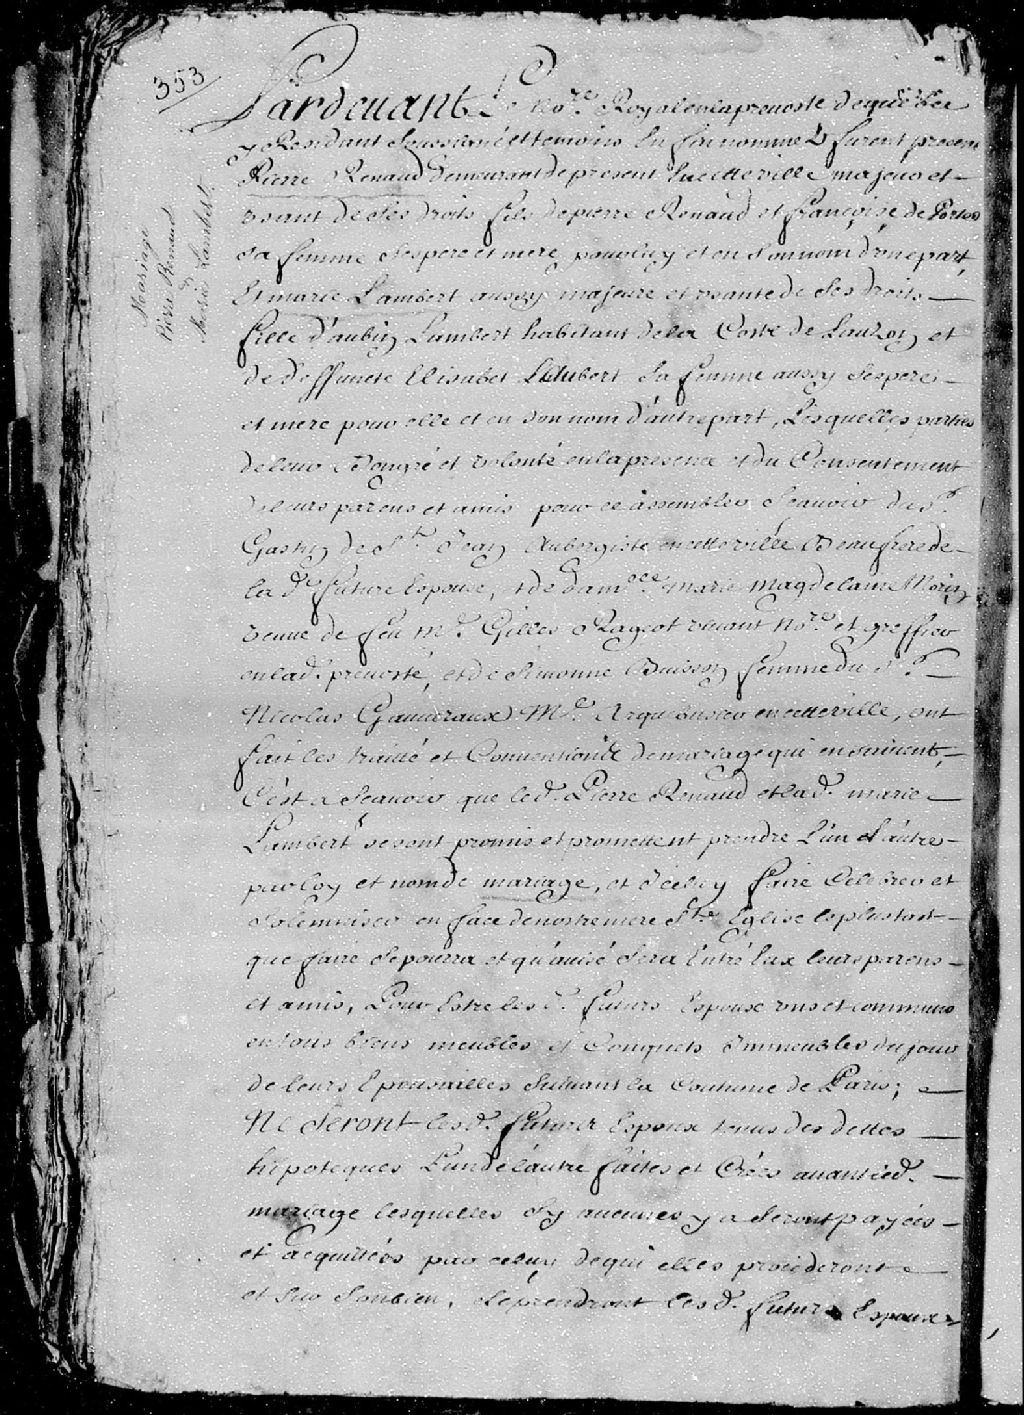 353
Mariage
Pierre Renaud
&
Marie Lambert.
Pardevant Le No.re Royal en la prevosté de quebec
y Residant soussigné et temoins En fin nommez furent presens
Pierre Renaud demeurant de present en cette ville majeur et
usant de ses droits fils de pierre Renaud et françoise de Portes
sa femme ses pere et mere pour luy et en son nom d'une part,
Et marie Lambert aussy majeure et usante de ses droits
fille d'aubin Lambert habitant de la Coste de Lauzon et
de deffuncte Elisabet Aubert sa femme aussy ses pere
et mere pour elle et en son nom d'autre part, Lesquelles parties
de leur Bon gré et volonté en la presence et du Consentement
de leurs parens et amis pour ce assemblez scavoir du s.r
Gastin de S.t Jean Aubergiste en cette ville Beaufrere de
la d.e future Espouse, et de dam.elle marie magdelaine Morin
veuve de feu m.e Gilles Rageot vivant No.re et greffier
en lad. prevosté, et de Simonne Buisson femme du s.r
Nicolas Gauvreaux M.e Arquebusier en cette ville, ont
fait les traité et Conventions de mariage qui en suivent,
C'est a Scavoir que led. Pierre Renaud et lad. marie
Lambert se sont promis et promettent prendre L'un et l'autre
par loy et nom de mariage, et Icelluy faire Celebrer et
solemniser en face de nostre mere S.te Eglise le plus tost
que faire se pourra et qu'avisé sera Entre Eux leurs parens
et amis, Pour Estre les d. futurs Espoux uns et communs
en tous biens meubles et Conquets Immeubles du jour
de leurs Epousailles suivant la Coutume de Paris;
Ne seront les d. futurs Espoux tenus des dettes
hipoteques L'un de l'autre faites et Créés avant led.
mariage lesquelles sy aucunes y a seront payées
et acquittées par celuy de qui elles procederont
et sur son bien, se prendront les d. futurs Espoux